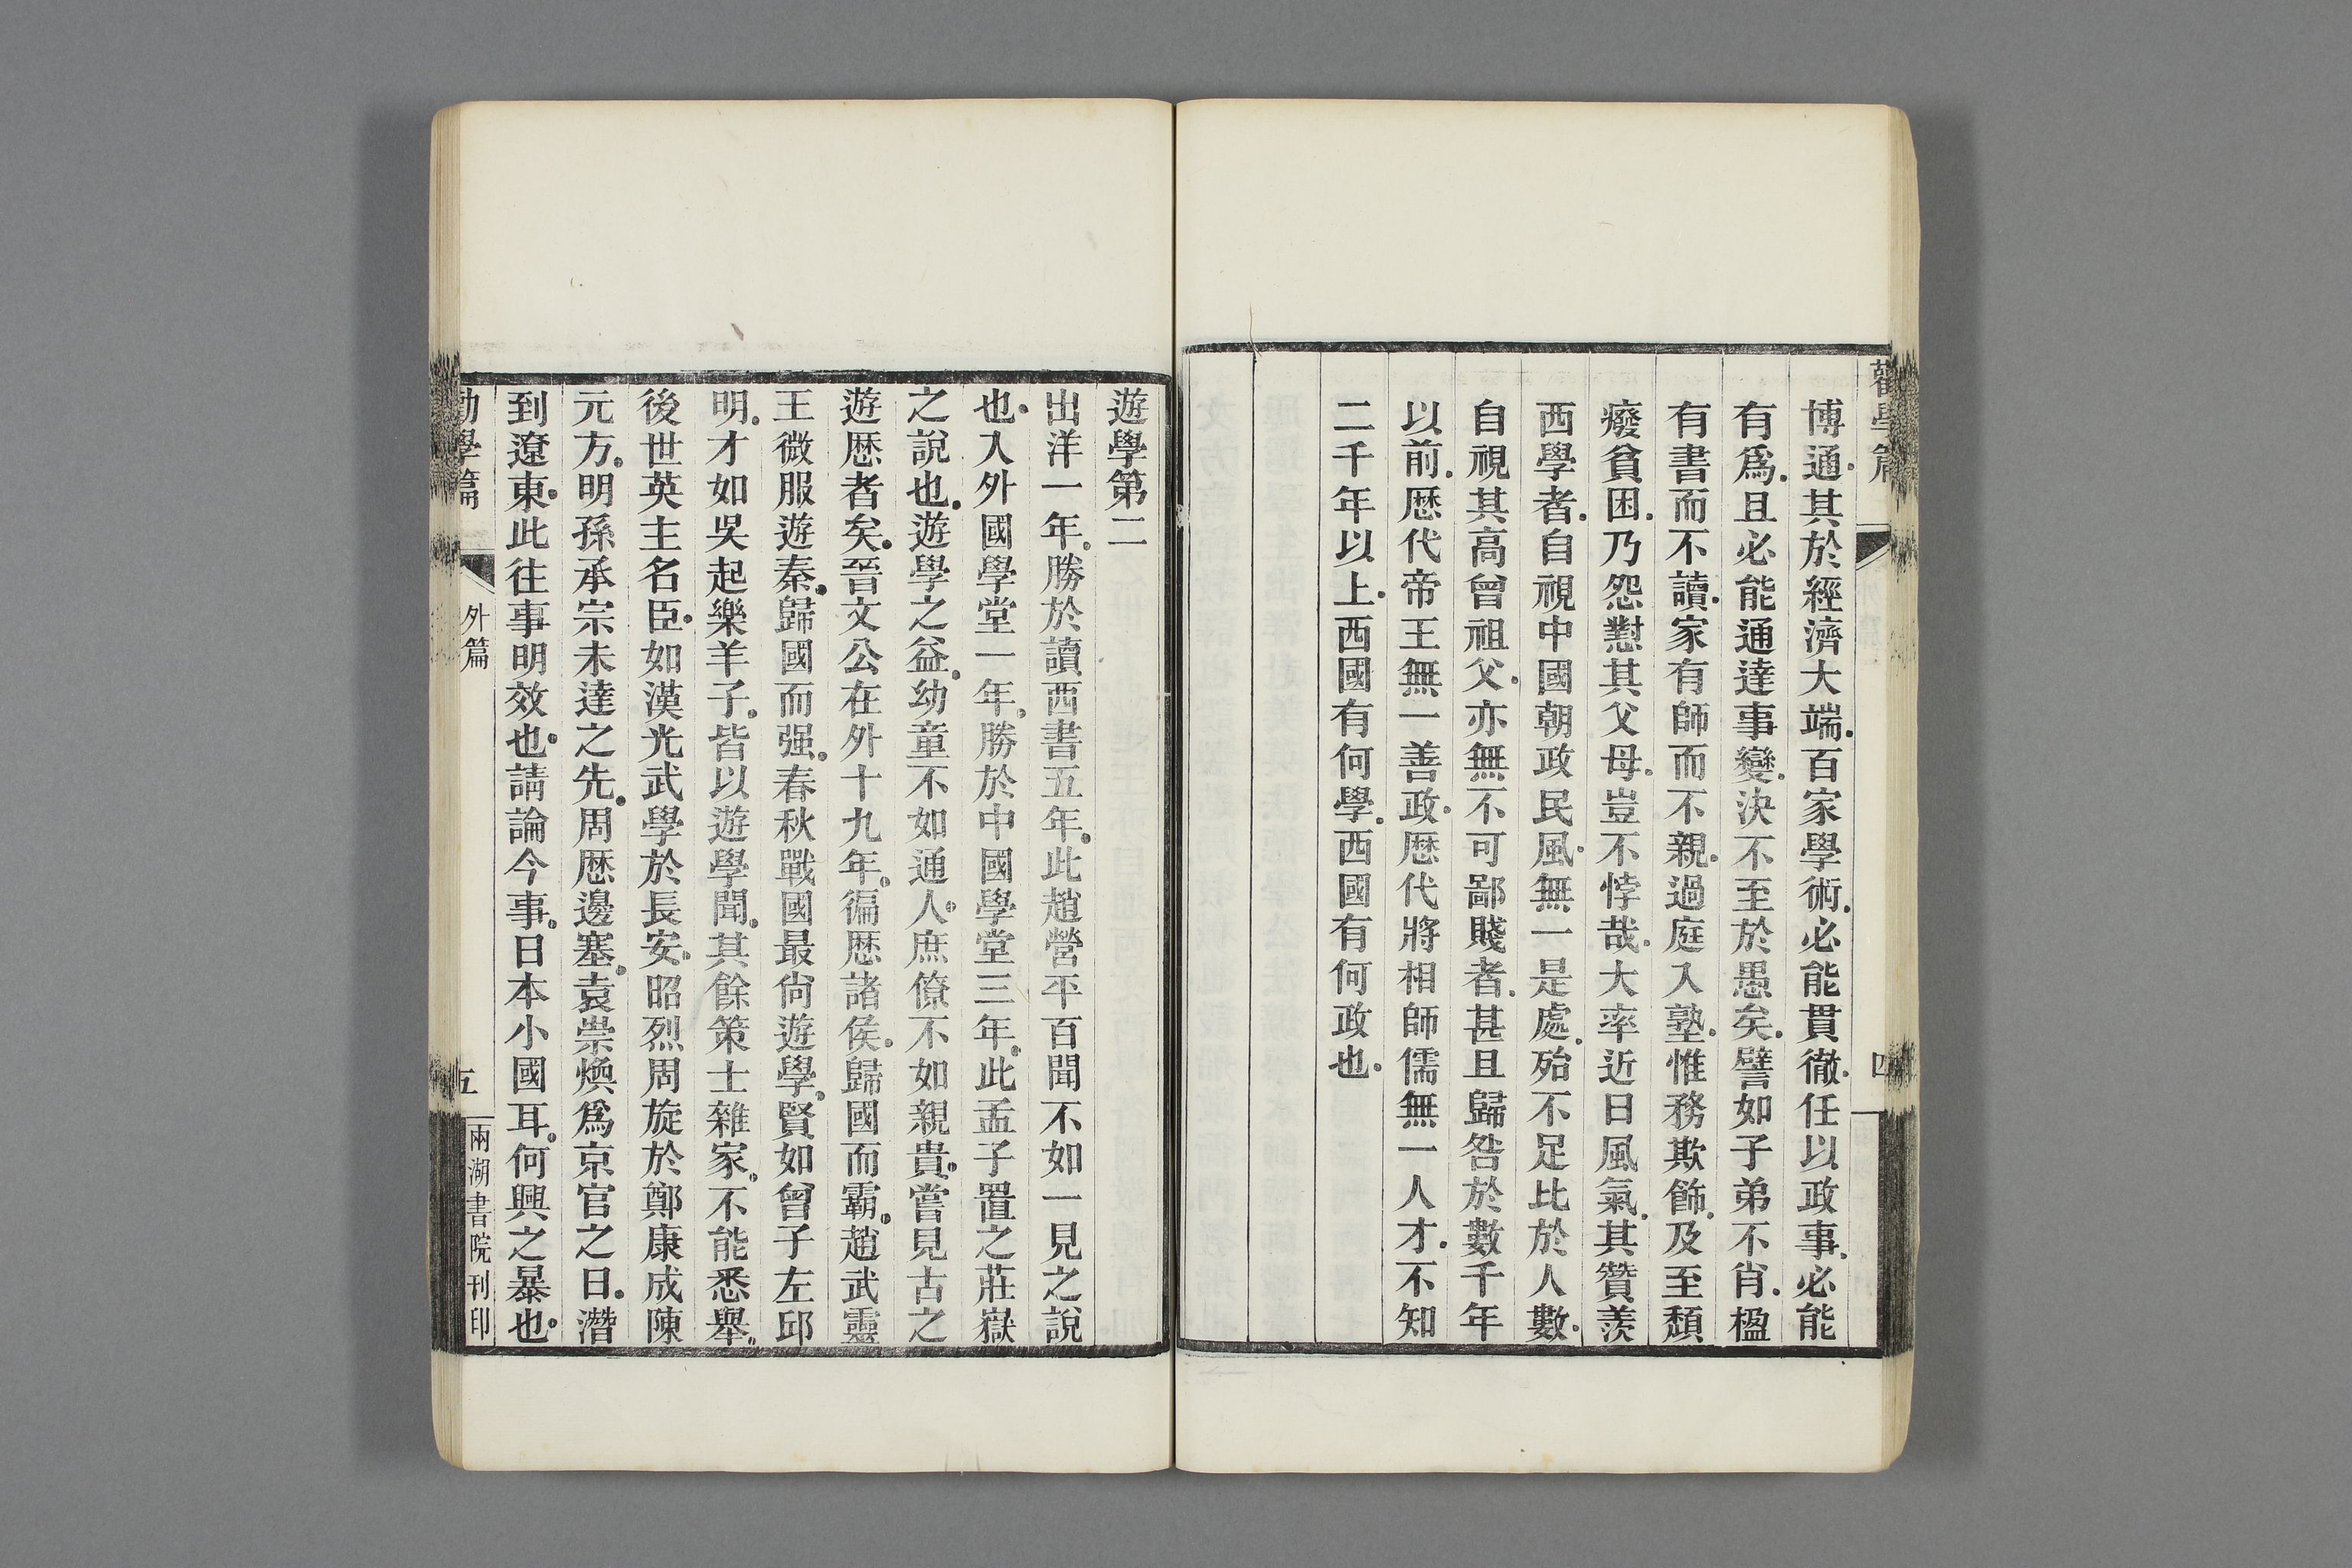 勸學篇
四
博通其於經濟大端百家學術必能貫徹任以政事必能
有爲且必能通達事變決不至於愚矣譬如子弟不肖楹
有書而不讀家有師而不親過庭入塾惟務欺飾及至頽
癈貧困乃怨懟其父母豈不悖哉大率近日風氣其贊羨
西學者自視中國朝政民風無一是處殆不足比於人數
自視其高曾祖父亦無不可鄙賤者甚且歸咎於數千年
以前歴代帝王無一善政歴代將相師儒無一人才不知
二千年以上西國有何學西國有何政也
遊學第二
出洋一年勝於讀西書五年此趙營平百聞不如一見之說
也入外國學堂一年勝於中國學堂三年此孟子置之莊嶽
之說也遊學之益幼童不如通人庶僚不如親貴嘗見古之
遊歴者矣晉文公在外十九年徧歴諸侯歸國而霸趙武靈
王微服遊秦歸國而强春秋戰國最尙遊學賢如曾子左邱
明才如吳起樂羊子皆以遊學聞其餘策士雜家不能悉舉
後世英主名臣如漢光武學於長安昭烈周旋於鄭康成陳
元方明孫承宗未達之先周歴邊塞袁崇煥爲京官之日潛
到遼東此往事明效也請論今事日本小國耳何興之暴也
勸學篇
外篇
五
兩湖書院刊印